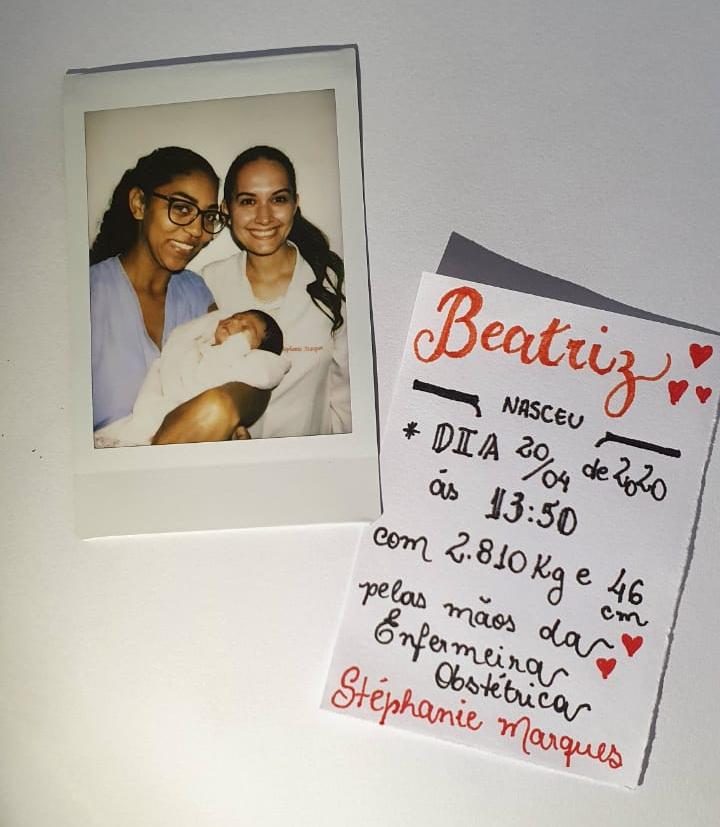 Stéphanie Marques
Beatriz
NASCEU
* DIA 20/04 de 2020
ás 13:50
com 2.810 Kg e 46
cm
pelas mãos da
Enfermeira
Obstétrica
Stéphanie Marques